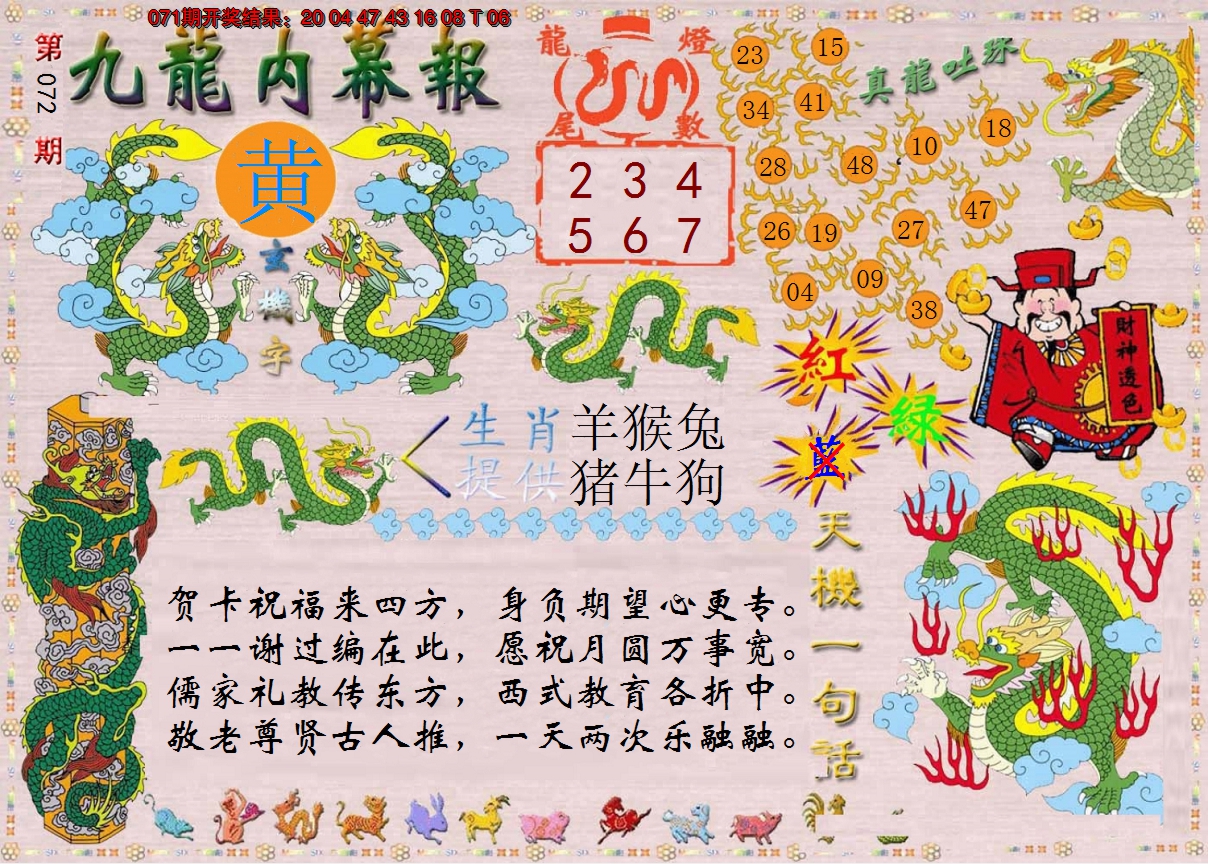 071期开奖结果：20 04 47 43 16 08 T 06
第072期
九龍内幕報
黄
玄機字
龍燈尾數
2 3 4
5 6 7
真龍吐珠
23
15
34
41
28
48
10
18
26
19
27
47
04
09
38
財神透色
紅
綠
藍
生肖提供
羊猴兔
猪牛狗
天機一句話
贺卡祝福来四方，身负期望心更专。
一一谢过编在此，愿祝月圆万事宽。
儒家礼教传东方，西式教育各折中。
敬老尊贤古人推，一天两次乐融融。